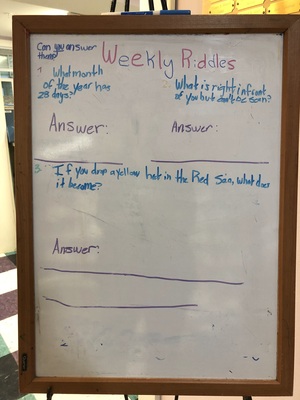 Can you answer
them?
Weekly Riddles
1. What month
of the year has
28 days?
What is right in front
of you but can't be seen?
Answer:
Answer:
3. If you drop a yellow hat in the Red Sea, what does
it become?
Answer: